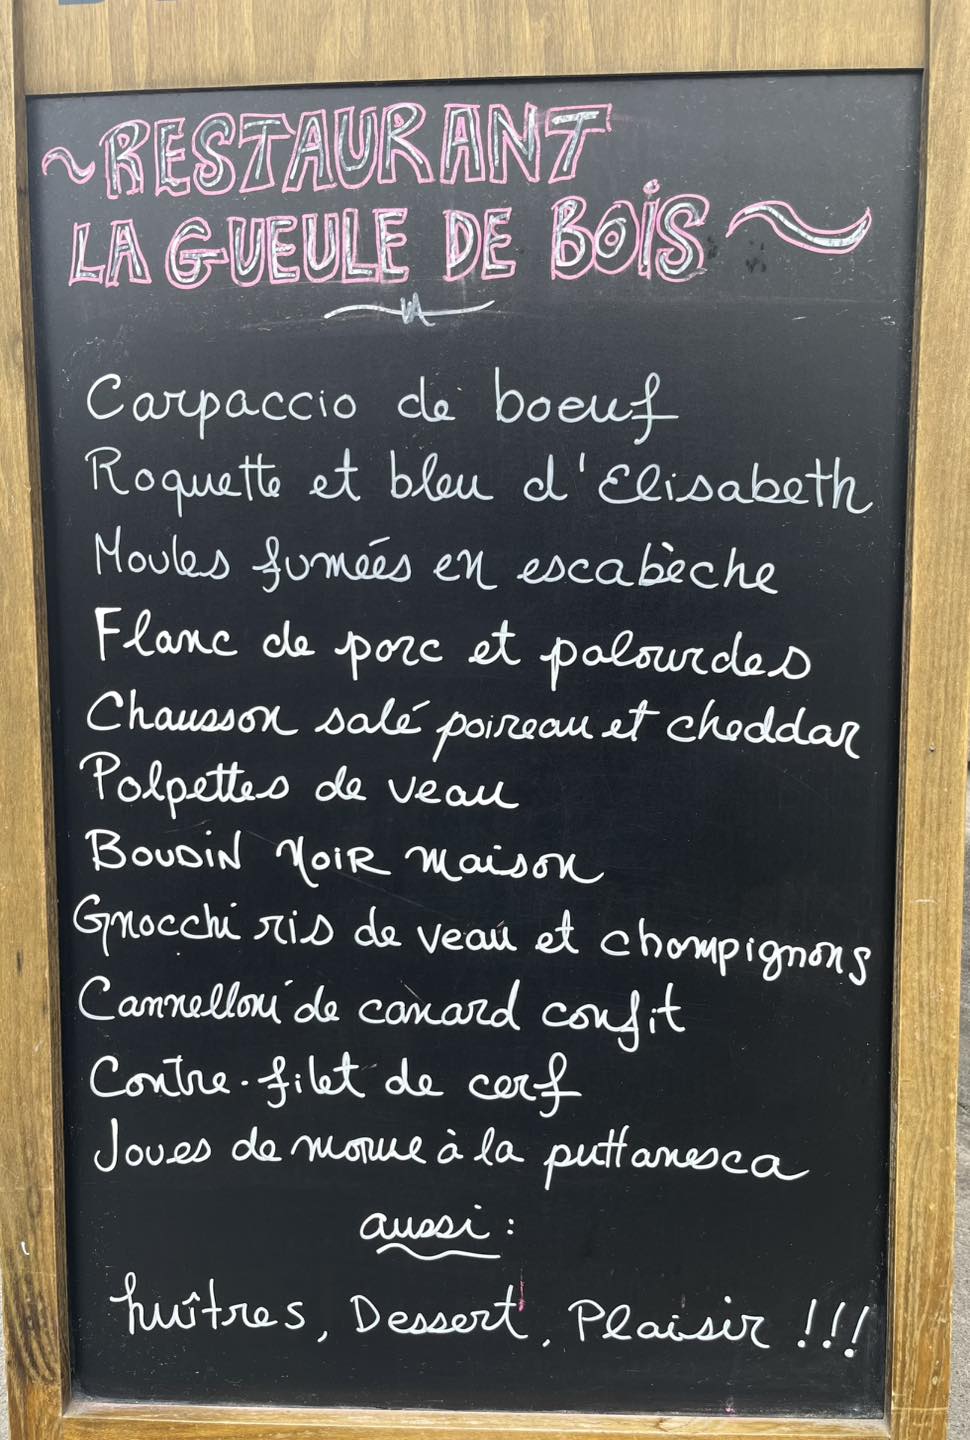 ~RESTAURANT
LA GUEULE DE BOIS~
Carpaccio de boeuf
Roquette et bleu d'Elisabeth
Moules fumées en escabèche
Flanc de porc et palourdes
Chausson salé poireau et cheddar
Polpettes de veau
BOUDIN NOIR maison
Gnocchi ris de veau et champignons
Cannelloni de canard confit
Contre-filet de cerf
Joues de morue à la puttanesca
aussi :
huîtres, Dessert, Plaisir !!!